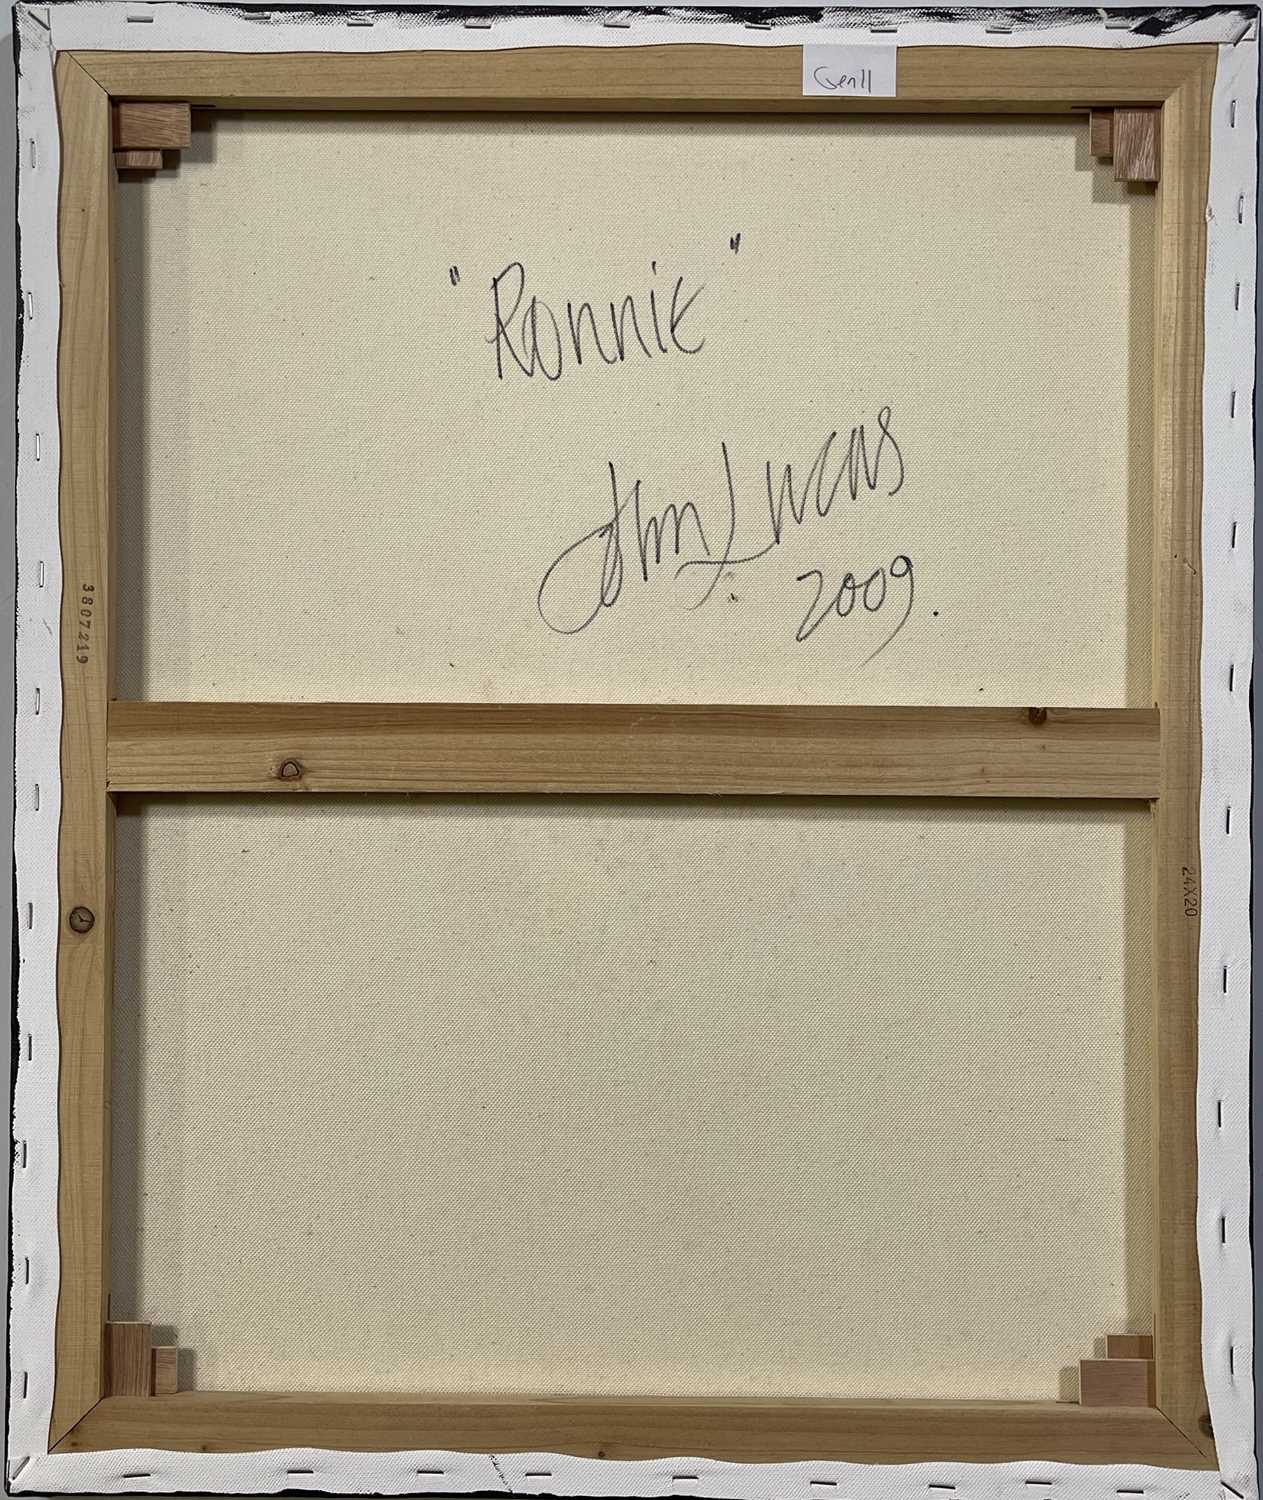 "Ronnie"
John Lucas
2009.
3807219
24X20